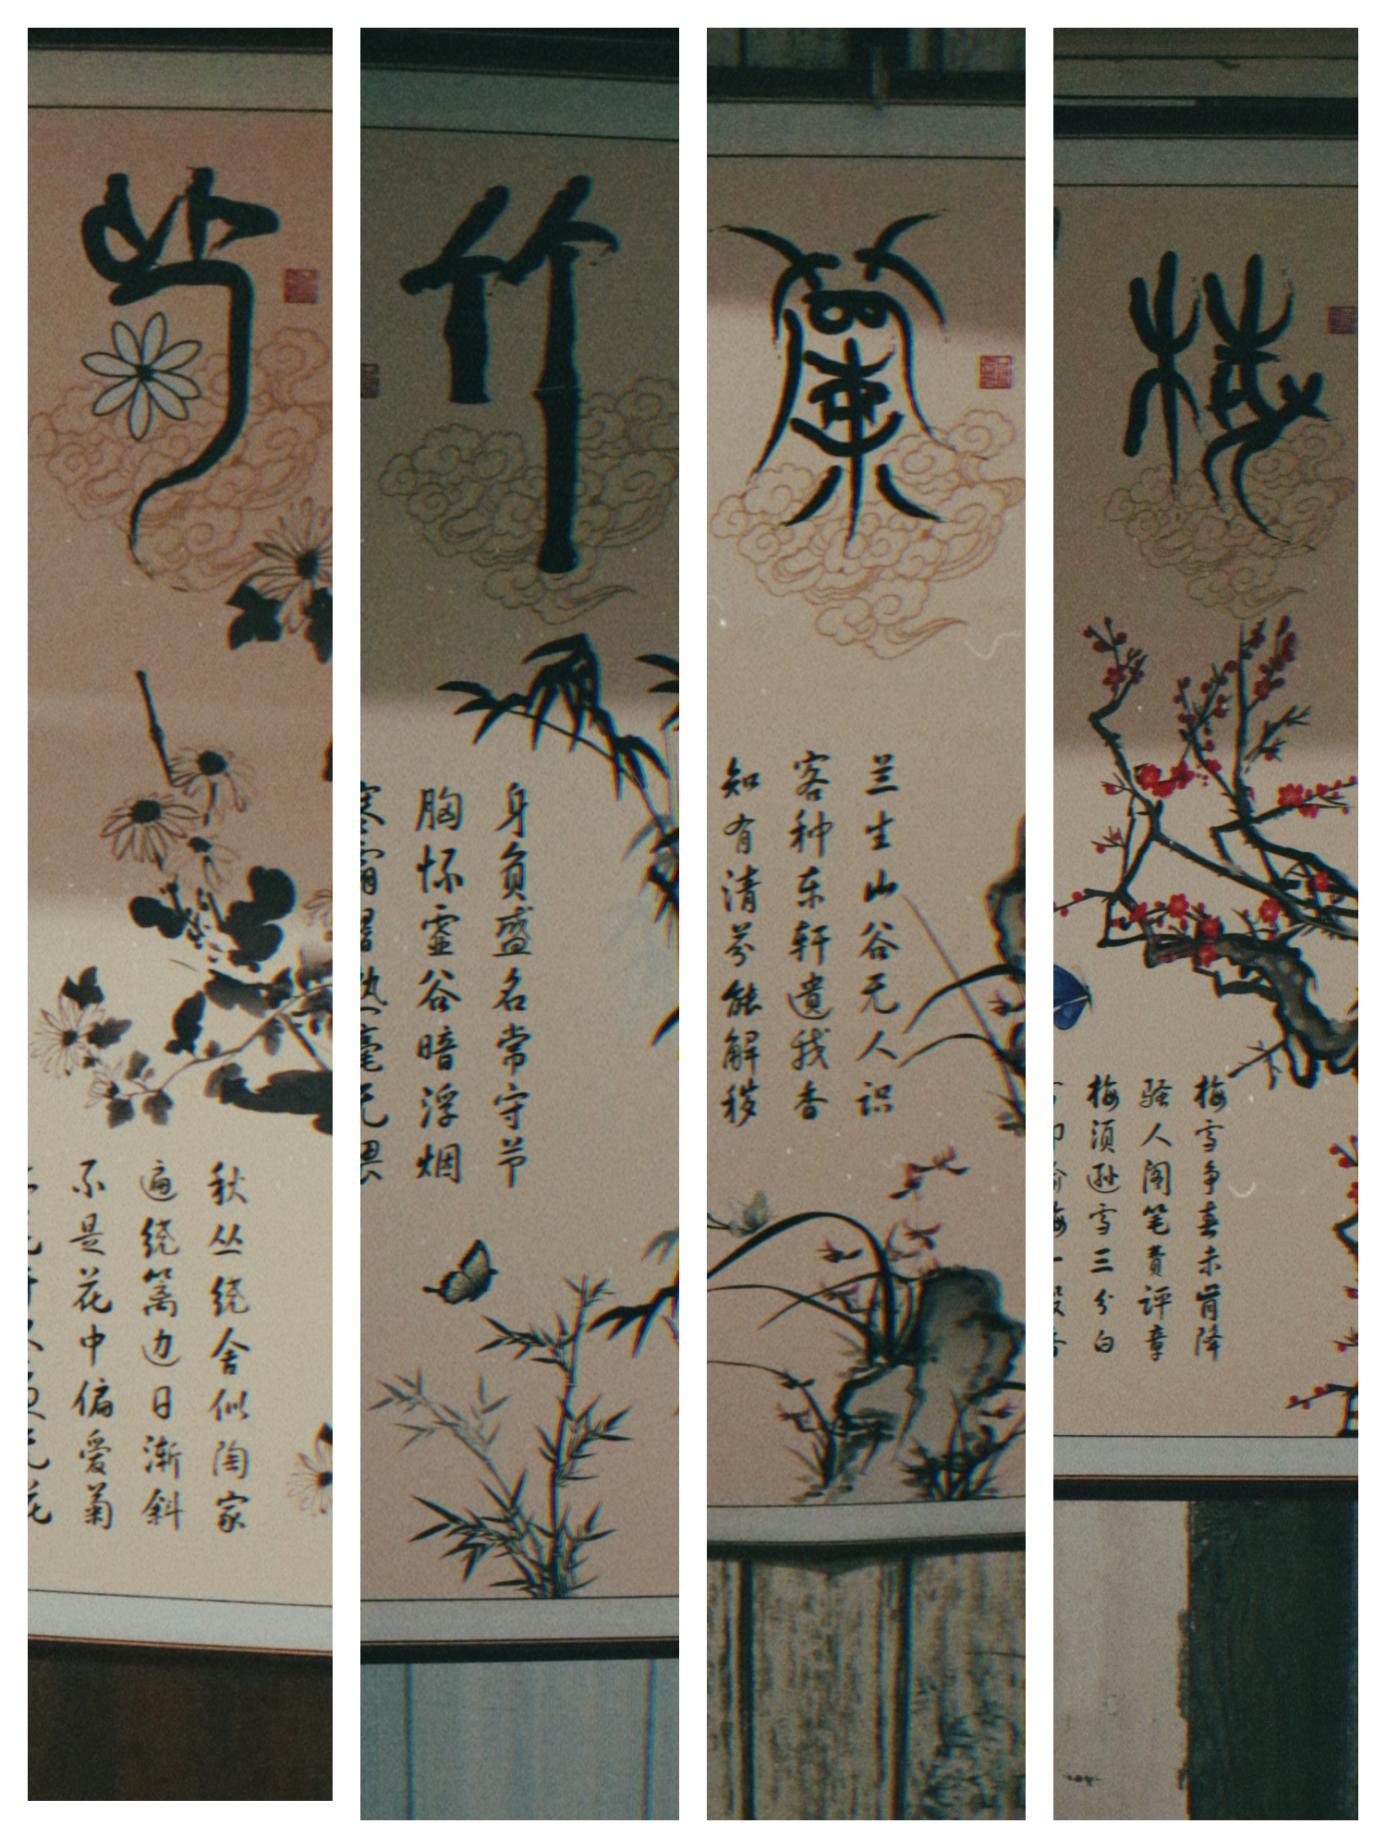 梅
梅雪争春未肯降
骚人阁笔费评章
梅须逊雪三分白
蘭
兰生山谷无人识
客种东轩遗我香
知有清芬能解秽
竹
身负盛名常守节
胸怀虚谷暗浮烟
菊
秋丛绕舍似陶家
遍绕篱边日渐斜
不是花中偏爱菊